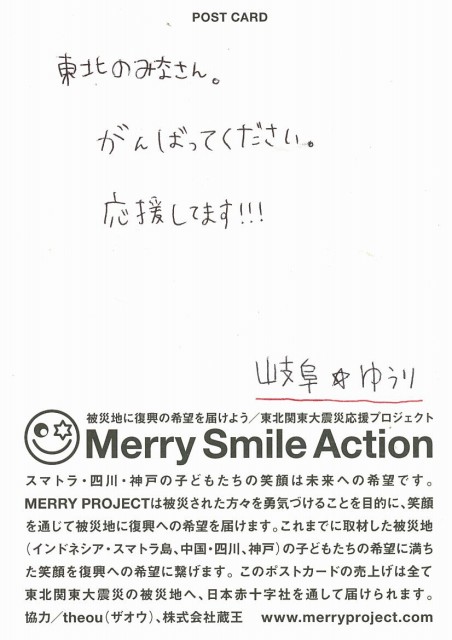 POST CARD
東北のみなさん。
がんばってください。
応援してます!!!
岐阜☆ゆうり
被災地に復興の希望を届けよう／東北関東大震災応援プロジェクト
Merry Smile Action
スマトラ・四川・神戸の子どもたちの笑顔は未来への希望です。
MERRY PROJECTは被災された方々を勇気づけることを目的に、笑顔
を通じて被災地に復興への希望を届けます。これまでに取材した被災地
（インドネシア・スマトラ島、中国・四川、神戸）の子どもたちの希望に満ち
た笑顔を復興への希望に繋げます。このポストカードの売上げは全て
東北関東大震災の被災地へ、日本赤十字社を通して届けられます。
協力／theou（ザオウ）、株式会社蔵王　www.merryproject.com